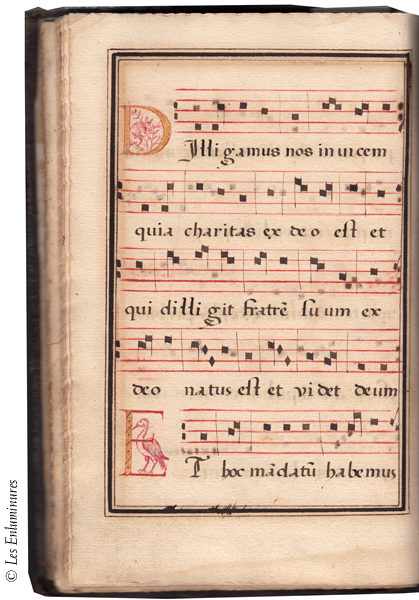 DIlli gamus nos in ui cem
quia charitas ex deo est et
qui dilli git fratrē suum ex
deo natus est et videt deum
ET hoc mādatū habemus
© Les Enluminures